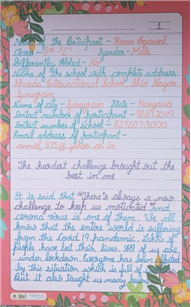 1
Name of the Participant - Naman Agarwal
Class - Gender - Male
Differently Abled - No
Name of the School with complete address:
Shalom International School Shiv Nagar
Gurugram
Name of city - Gurugram State - Haryana
Contact number of participant -
Contact number of school -
Email address of participant -
The hardest challenge brought out the
best in me
It is said that "There's always a new
challenge to keep us motivated" and
corona virus is one of them. We all
know that the entire world is suffering
from the Covid 19 pandemic. Lakhs of
people have lost their lives. All of us are
under lockdown. Everyone has been affected
by this situation which is full of
But it also taught us many